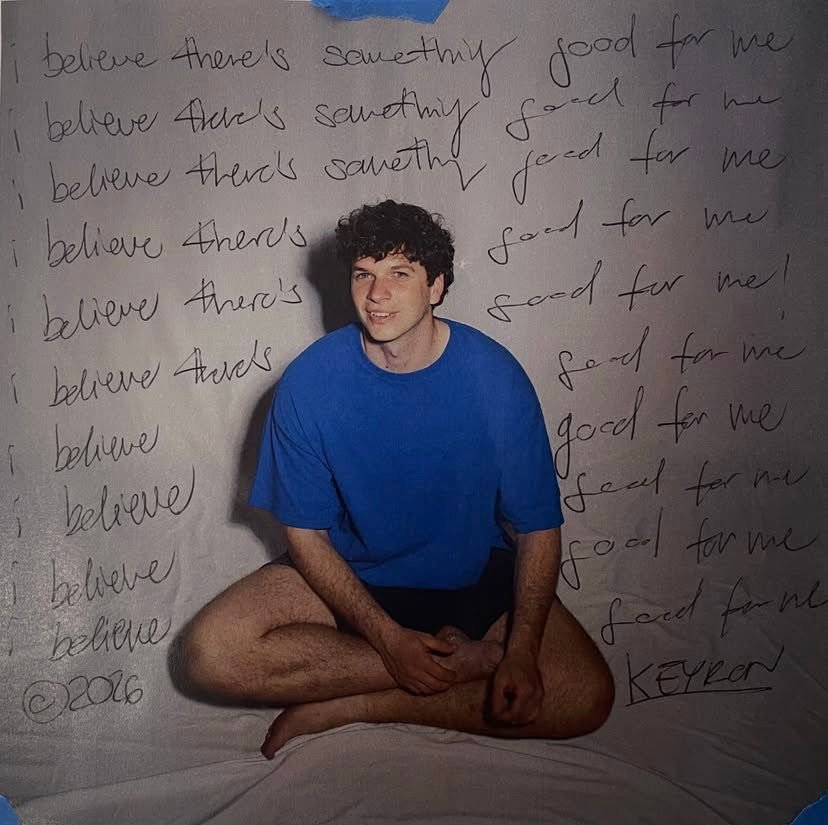 i believe there's somethiy good for me
i believe there's somethiy good for me
i believe there's somethy good for me
i believe there's good for me
i believe there's good for me!
i believe there's good for me
i believe good for me
i believe good for me
i believe good for me
i believe good for me
©2026 KEYRON